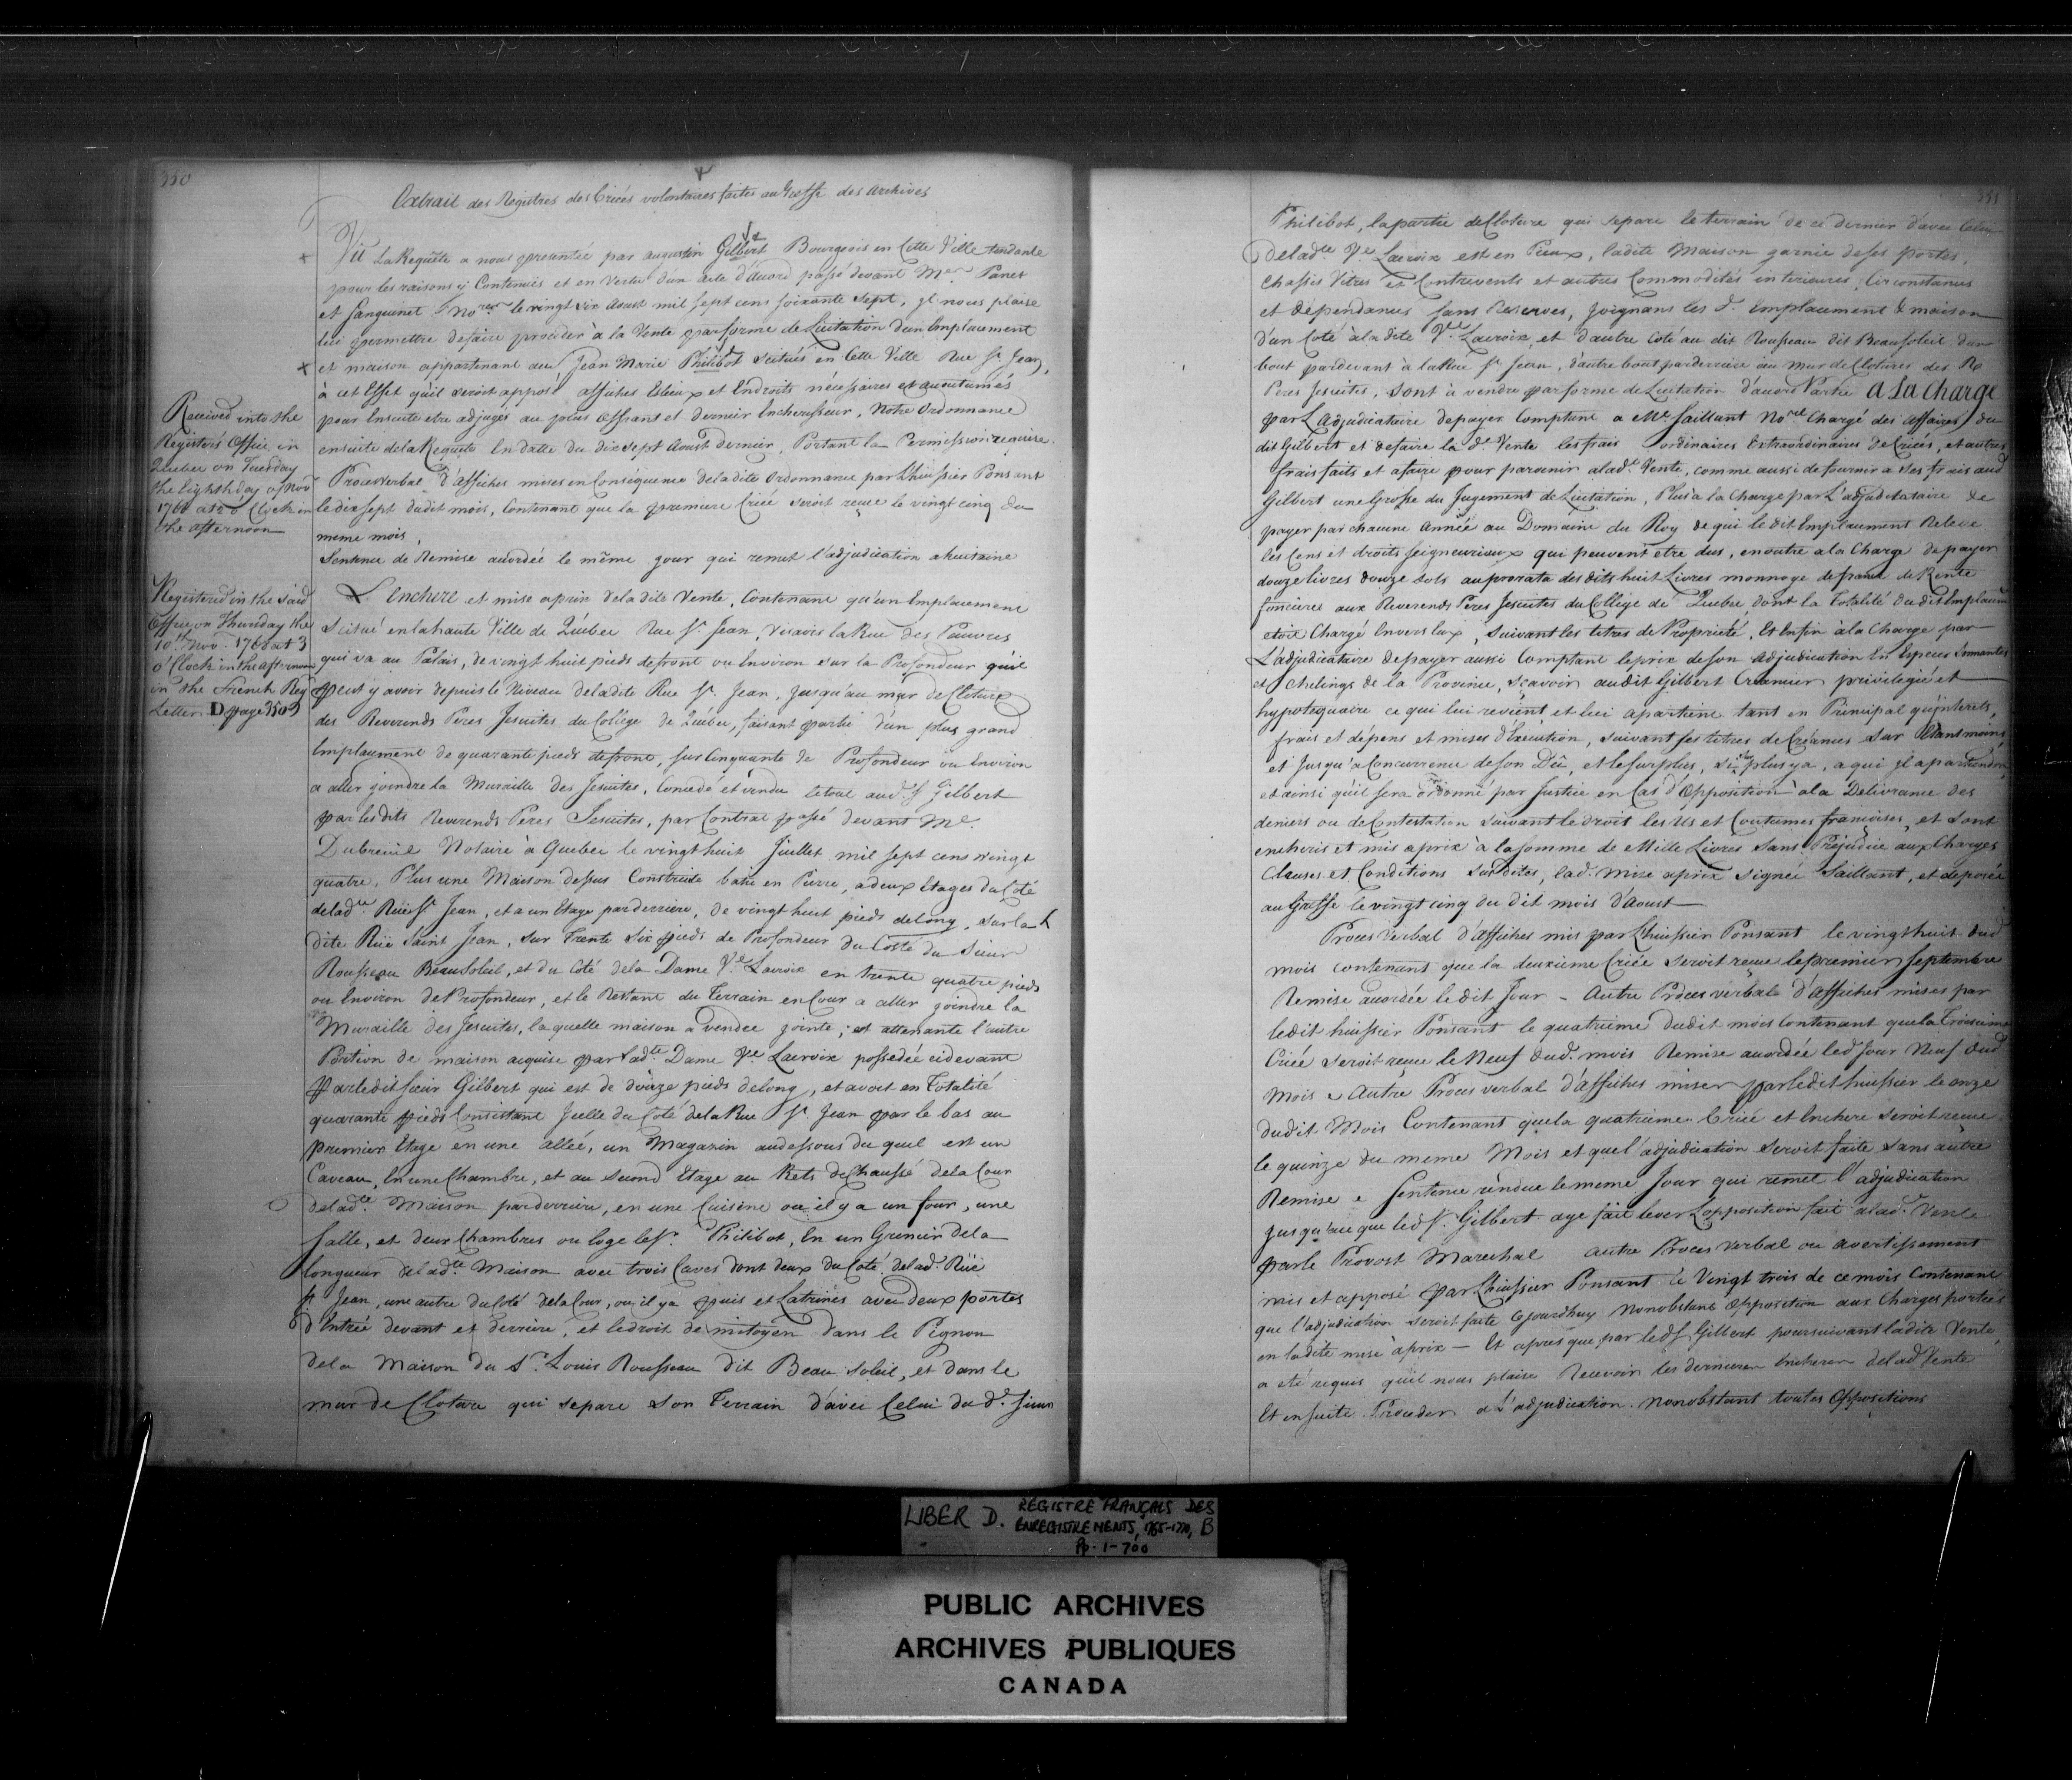 350
Extrait des Registres des Criées volontaires faites au Greffe des Archives
Vû La Requête a nous presentée par augustin Gilbert Bourgeois en Cette Ville tendante
pour les raisons y Contenuës et en Vertu d'un acte d'acord passé devant Mes Panet
et Sanguinet Nores le vingt six Aoust mil sept cens soixante sept, jl nous plaise
lui permettre de faire proceder à la Vente par forme de Licitation d'un Emplacement
et maison appartenant au Jean Marie Philibot scituës en Cette Ville Rue St. Jean,
à cet Effet qu'il seroit apposé affiches es lieux et Endroits nécessaires et acoutumés
pour Ensuite etre adjugés au plus offrant et dernier Encherisseur, Notre Ordonnance
ensuite de la Requête En datte du dix sept Aoust dernier, Portant la Permission requise.
Procès verbal d'affiches mises en Conséquence de la dite Ordonnance par L'huissier Ponsant
le dix sept dudit mois, Contenant que la premiere Criée seroit reçue le vingt cinq du
meme mois,
Sentence de Remise acordée le même jour qui remet l'adjudication a huitaine
Received into the
Registers Office in
Quebec on Tuesday
the Eighth day of Novr
1768 at 3 o'Clock in
the afternoon
Registered in the said
Office on Thursday the
10th. Novr. 1768 at 3
o'Clock in the afternoon
in the French Regr
Letter D page 350
L'Enchere et mise a prix de la dite Vente, Contenant qu'un Emplacement
Scitué en la haute Ville de Québec Rue St. Jean, Visavis la Rue des Pauvres
qui va au Palais, de vingt huit pieds de front ou Environ sur la Profondeur qu'il
peut y avoir depuis le Niveau de la dite Rue St. Jean, jusqu'au mur de Cloture
des Reverends Peres Jesuites du Collége de Québec, faisant partie d'un plus grand
Emplacement de quarante pieds de front, sur Cinquante de Profondeur ou Environ
a aller joindre la Muraille des Jesuites, Concedé et vendu le tout aud. S. Gilbert
par les dits Reverends Peres Jesuites, par Contrat passé devant Me.
Dubreuil Notaire à Quebec le vingt huit Juillet mil sept cens vingt
quatre, Plus une Maison dessus Construite batie en Pierre, a deux Etages du Coté
de lad.te Ruë St Jean, et a un Etage par derriere, de vingt huit pieds de long, sur la
dite Ruë Saint Jean, sur Trente Six pieds de Profondeur du Costé du Sieur
Rousseau Beausoleil, et du Coté de la Dame Ve. Lacroix en trente quatre pieds
ou Environ de Profondeur, et le Restant du Terrain en Cour a aller joindre la
Muraille des Jesuites, laquelle maison a vendre jointe; et attenante l'autre
Portion de maison acquise par Lad.te Dame Ve Lacroix possedée cidevant
Par ledit Sieur Gilbert qui est de douze pieds de long, et avoit en Totalité
quarante pieds Consistant Jcelle du Coté de la Rue St. Jean par le bas au
premier Etage en une allée, un Magazin au dessous du quel est un
Caveau, En une Chambre, et au second Etage au Rets de Chaussé de la Cour
de lad.te Maison par derriere, en une Cuisine ou il y a un four, une
Salle, et deux Chambres ou loge le Sr. Philibot, En un Grenier de la
longueur de lad.te Maison avec trois Caves dont deux du Coté de lad. Ruë
St Jean, une autre du Coté de la Cour, ou il y a puis et Latrines avec deux portes
d'Entrée devant et derriere, et le droit de mitoyen dans le Pignon
de la Maison du Sr. Louis Rousseau dit Beau Soleil, et dans le
mur de Cloture qui separe son Terrain d'avec Celui du d. Sieur
351
Philibot, la partie de Cloture qui separe le terrain de ce dernier d'avec Celui
de lad.te Ve Lacroix est en Pieux, ladite Maison garnie de ses portes,
Chassis Vitres et Contrevents et autres Commodités interieures, Circonstances
et dépendances sans Reserves, joignans les d. Emplacement & maison
d'un Coté à la dite Ve. Lacroix, et d'autre Coté au dit Rousseau dit Beausoleil d'un
bout par devant à la Rue St. Jean, d'autre bout par derriere au mur de Clotures des R
Peres Jesuites, Sont à vendre par forme de Licitation d'autre Partie A La Charge
par L'adjudicataire de payer Comptant a Me. Saillant Nore. Chargé des affaires du
dit Gilbert et de faire la d.e Vente les frais ordinaires Extraordinaires de Criées, et autres
frais faits et a faire pour parvenir a lad.te Vente, comme aussi de fournir a ses frais aud
Gilbert une Grosse du Jugement de Licitation, Plus a la Charge par L'adjudicataire de
payer par chacune année au Domaine du Roy de qui le dit Emplacement Releve
les Cens et droits seigneuriaux qui peuvent etre dus, en outre a la Charge de payer
douze livres douze sols au prorata des dits huit Livres monnoye de france de Rente
fonciere aux Reverends Peres Jesuites du College de Quebec, dont la Totalité du dit Emplacemt
etoit Chargé Envers Eux, Suivant les titres de Proprieté, Et Enfin à la Charge par
L'adjudicataire de payer aussi Comptant le prix de son adjudication En Especes Sonnantes
et Chelings de la Province, Sçavoir audit Gilbert Creancier privilegié et
hypotequaire ce qui lui revient, et lui apartient tant en Principal qu'jnterets,
frais et dépens et mises d'Execution, suivant ses titres de Créances sur
et Jusqu'a Concurrence de son Dû, et le surplus, si plus y a, a qui jl apartiendra
et ainsi qu'il sera Ordonné par Justice en Cas d'Opposition à la Delivrance des
deniers ou de Contestation Suivant le droit les Us et Coutumes françoises, et sont
encheris et mis aprix à la somme de Mille Livres Sans Prejudice aux Charges
Clauses et Conditions Susdites, lad. mise a prix Signée Saillant, et deposée
au Greffe le vingt cinq du dit mois d'aoust
Proces Verbal d'affiches mis par L'huissier Ponsant le vingt huit dud
mois contenant que la deuxieme Criée seroit reçue le premier Septembre
Remise acordée ledit Jour - Autre Proces verbal d'affiches mises par
ledit huissier Ponsant le quatrieme dudit mois Contenant que la Troisieme
Criée seroit reçue le Neuf dud. mois Remise acordée led Jour Neuf dud
Mois Autre Proces verbal d'affiches mises par ledit huissier le onze
dudit Mois Contenant que la quatrieme Criée et Enchere seroit reçue
le quinze du meme Mois et que l'adjudication seroit faite sans autre
Remise Sentence rendue le meme Jour qui remet l'adjudication
jusqu'ace que led S. Gilbert aye fait lever L'opposition fait a lad. Vente
par le Provost Marechal autre Procès Verbal ou avertissement
mis et apposé Par L'huissier Ponsant le Vingt trois de ce mois Contenant
que l'adjudication seroit faite Cejourdhuy nonobstant Opposition aux Charges portées
en ladite mise à prix - Et apres que par led S Gilbert poursuivant ladite Vente,
a été requis qu'il nous plaise Recevoir les dernieres Encheres de lad Vente
Et ensuite Proceder a L'adjudication nonobstant toutes Oppositions
LIBER D. REGISTRE FRANÇAIS DES
ENREGISTREMENTS, 1765-1770, B
Pp. 1-700
PUBLIC ARCHIVES
ARCHIVES PUBLIQUES
CANADA